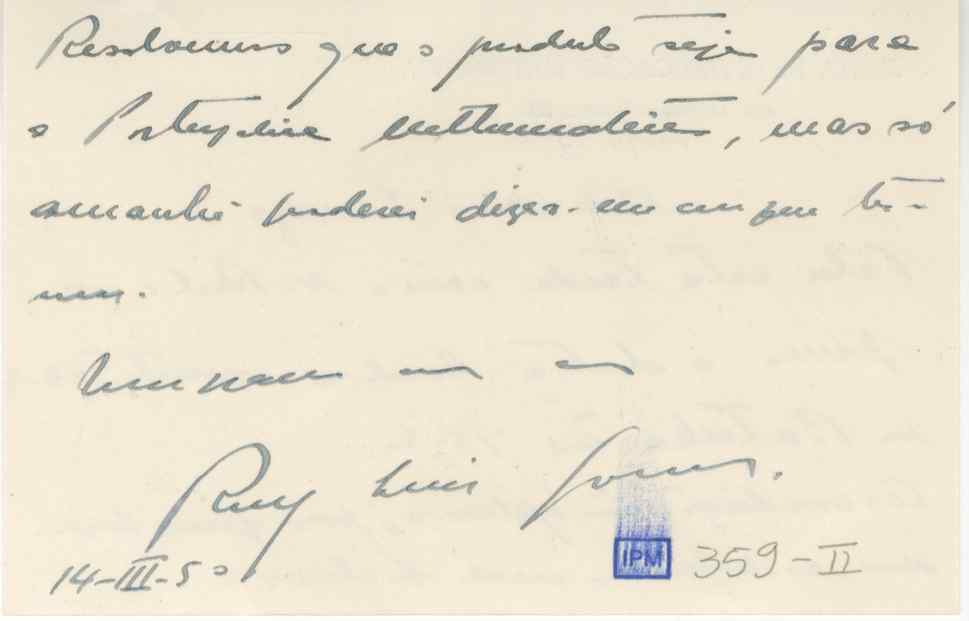 Resolvemos que o produto seja para
a Portugaliae Mathematica, mas só
amanhã poderei dizer-me em que
Um para
Ruy Luís Gomes.
14-III-50
IPM 359-II